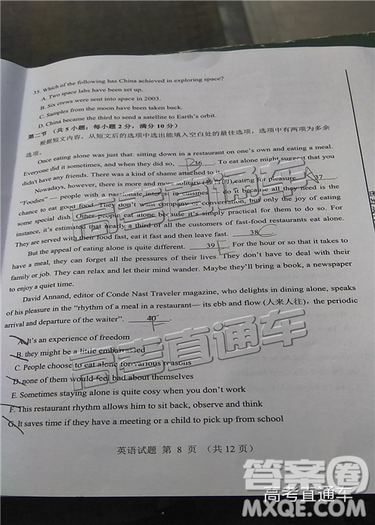 35. Which of the following has China achieved in exploring space?
A. Two space labs have been set up.
B. Six crews were sent into space in 2003.
C. Samples from the moon have been taken back.
D. China became the third to send a satellite to Earth's orbit.
第二节 (共5小题, 每小题2分, 满分10分)
根据短文内容, 从短文后的选项中选出能填入空白处的最佳选项, 选项中有两项为多余
选项。
Once eating alone was just that: sitting down in a restaurant on one's own and eating a meal.
Everyone did it sometimes, and when they did so, 36 To eat alone might suggest that you
didn't have any friends. There was a kind of shame attached to
Nowadays, however, there is more and more solitary eating for pleasure. 37
"Foodies" — people with a passionate interest in do it because all they need is the
chance to eat good food. They don't want company or conversation, but only the joy of eating
some special dish. Other people eat alone because it's simply practical for them to do so. For
instance, it's estimated that nearly a third of all the customers of fast-food restaurants eat alone.
They are served with their food fast, eat it fast and then leave fast. 38 C
But the appeal of eating alone is quite different. 39 E For the hour or so that it takes to
have a meal, they can forget all the pressures of their lives. They don't have to deal with their
family or job. They can relax and let their mind wander. Maybe they'll bring a book, a newspaper
to enjoy a quiet time.
David Annand, editor of Conde Nast Traveler magazine, who delights in dining alone, speaks
of his pleasure in the "rhythm of a meal in a restaurant— its ebb and flow (人来人往), the periodic
arrival and departure of the waiter". 40 F
A. It's an experience of freedom
B. they might be a little embarrassed
C. People choose to eat alone for various reasons
D. none of them would feel bad about themselves
E. Sometimes staying alone is quite cosy when you don't work
F. This restaurant rhythm allows him to sit back, observe and think
G. It saves time if they have a meeting or a child to pick up from school
英语试题 第 8 页 (共12页)
高考直通车
高考直通车
答案圈
高考直通车
MXQE.COM